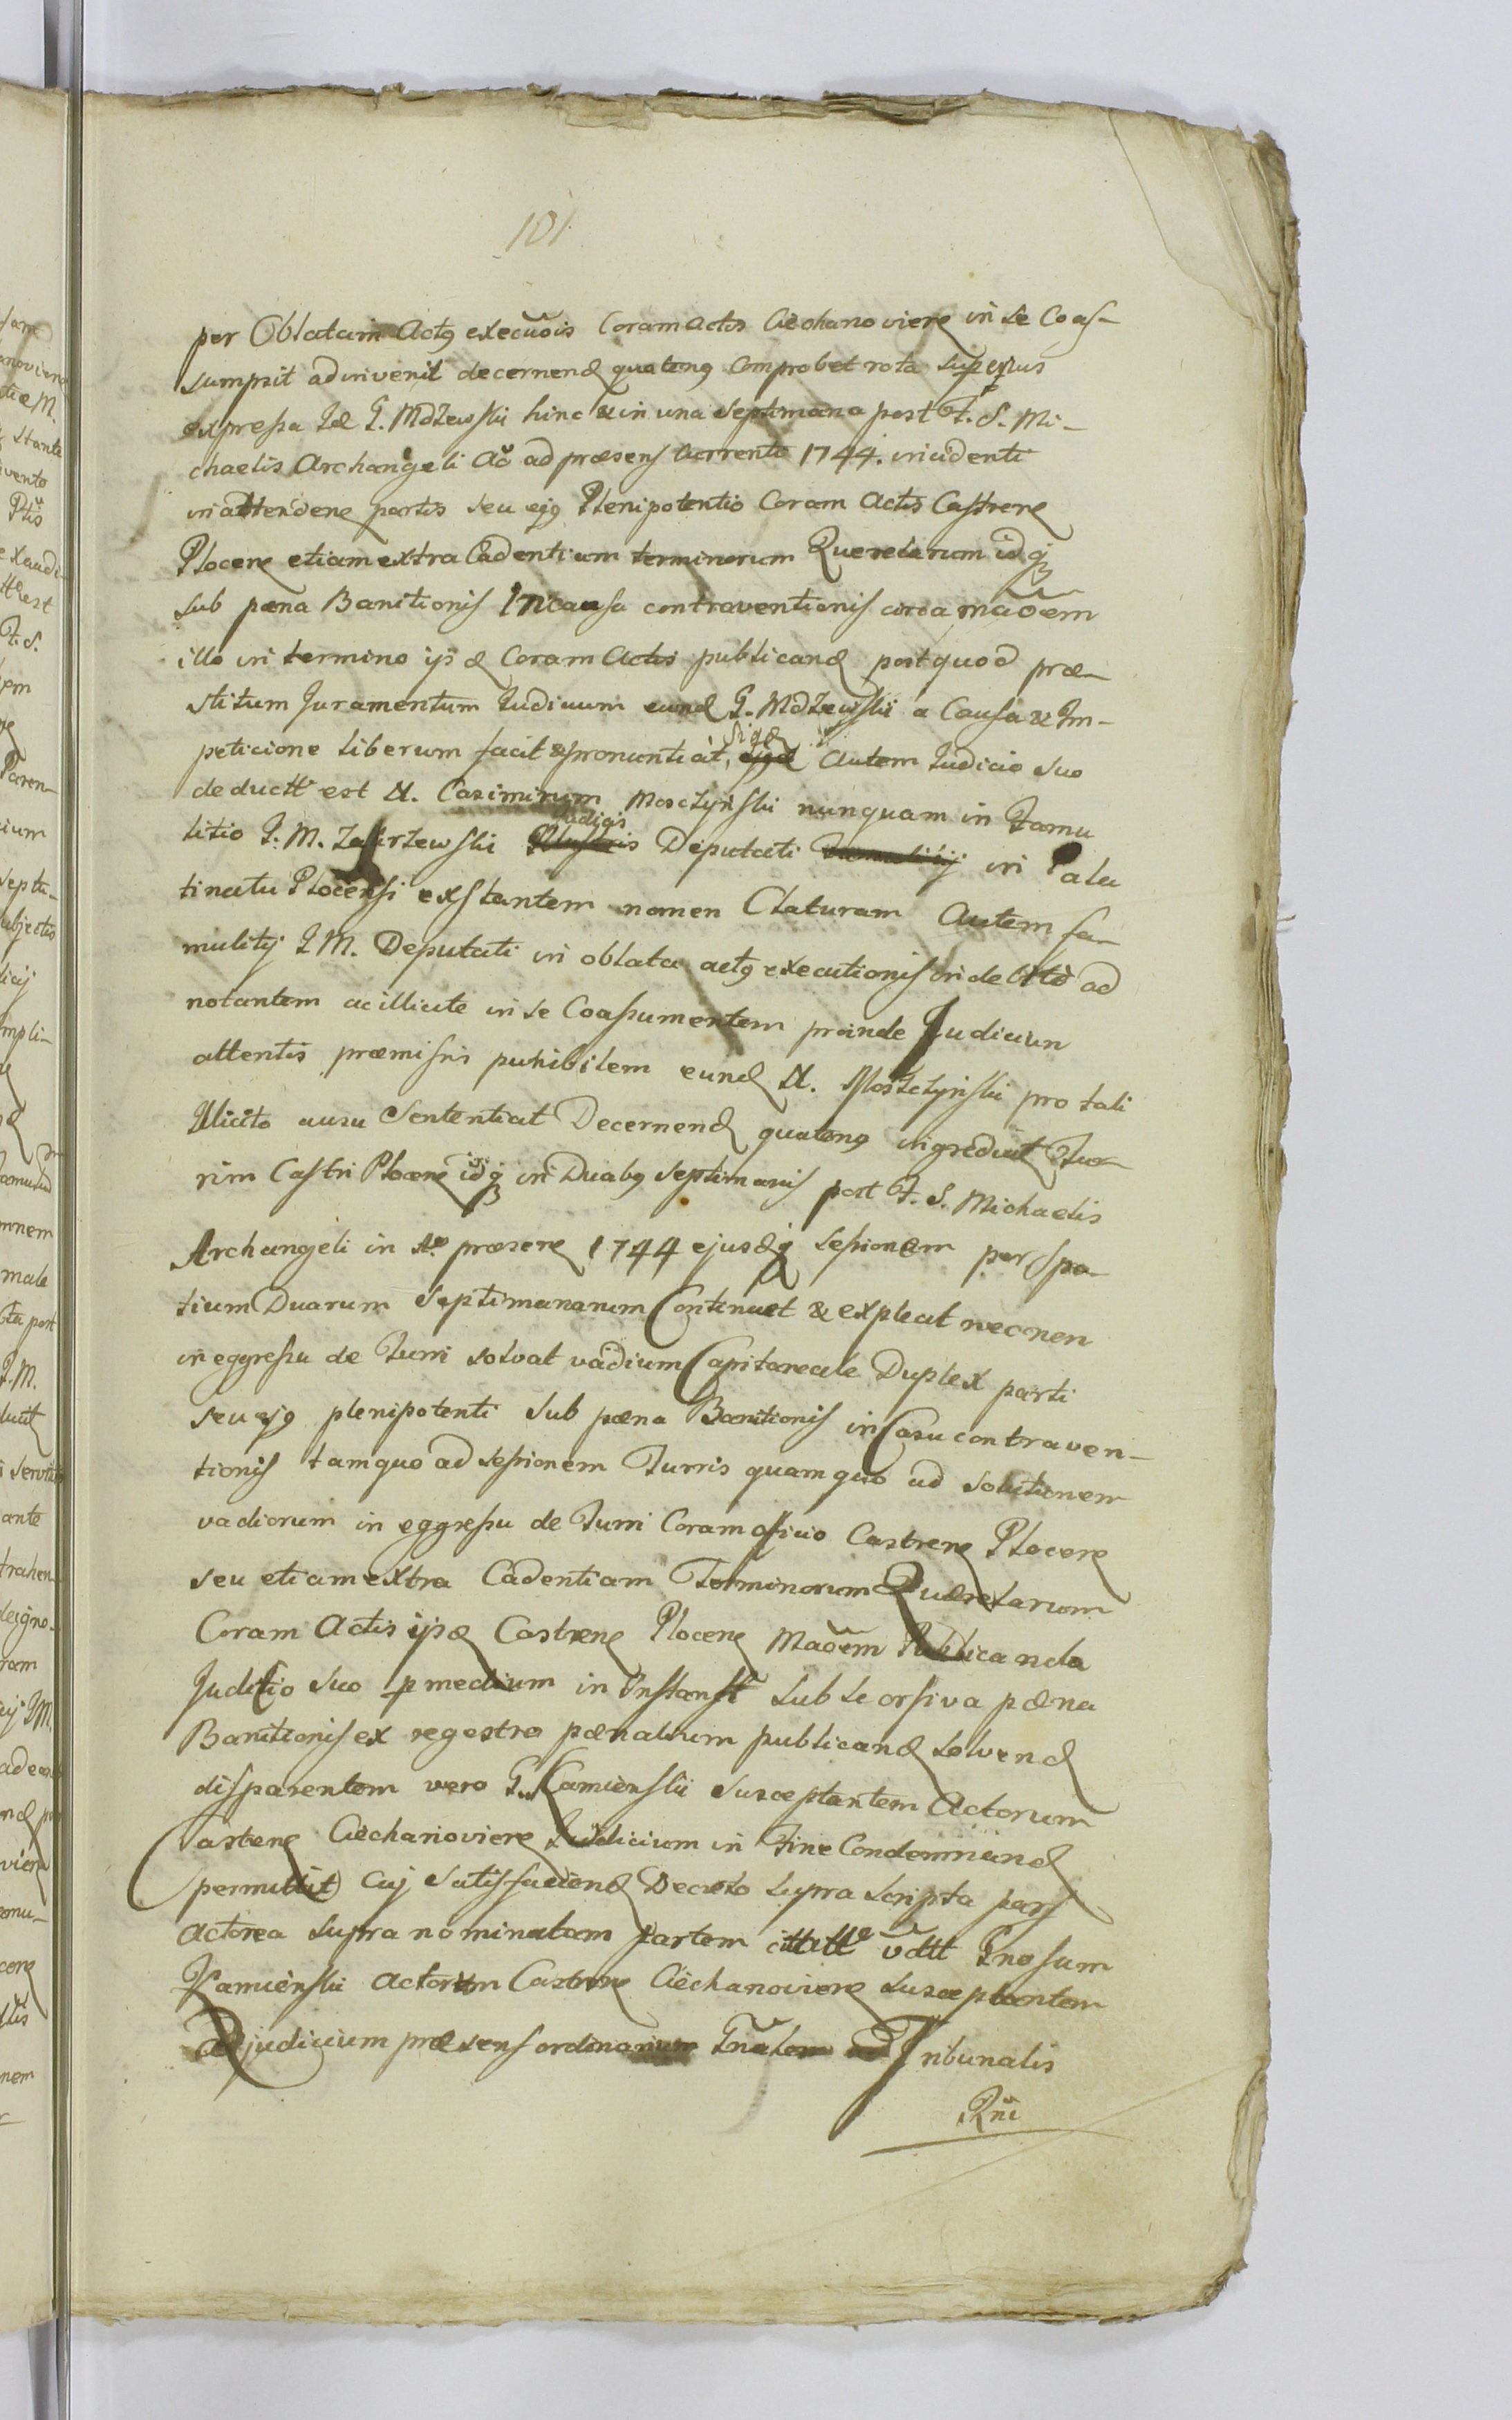 101
per Oblatam Actus execuois Coram actis Ciechanoviens in se Coas-
sumpsit adinvenit decernend quatenus comprobet rota superius
expressa Id G. Mdzewski hinc & in una septimana post F. S. Mi-
chaelis Archangeli Ao ad præsens currente 1744. incidenti
in attendene partis seu ejus Plenipotentio Coram Actis Castrens
Plocens etiam extra Cadentium terminorum Querelarum idq
sub pæna Banitionis In causa contraventionis circa maoem
illo in termino ijsd Coram Actis publicand post quod præ-
stitum Juramentum Judicium eund G. Mdzewski a Causa & Im-
peticione liberum facit & pronuntiat, Autem Judicio suo
deductt est N. Casimirum Moschynski nunquam in Famu
litio J. M. Zakrzewski Judicis Deputati in Pala
tinatu Plocensi exstantem nomen Claturam Autem fa-
mulitij J M. Deputati in oblata actus executionis indebite ad
notantem ac illicite in se Coassumentem proinde Judicium
attentis præmissis punibilem eund N. Moszczynski pro tali
Illicito ausu Sententiat Decernend quatenus ingrediat Tur-
rim Castri Plocens idq in Duabus septimanis post F. S. Michaelis
Archangeli in Ao præsens 1744 ejusdq sessionem per spa-
tium Duarum Septimanarum Continuet & expleat necnon
in eggressu de Turri solvat vadium Capitaneale Duplex parti
seu ejus plenipotenti sub pæna Banitionis in Casu contraven-
tionis tam quo ad sessionem Turris quam quo ad solutionem
vadiorum in eggressu de Turri Coram officio Castrens Plocens
seu etiam extra Cadentiam Terminorum Quærelarum
Coram Actis ipsd Castrens Plocens Maoem Publicanda
Juditio suo p medium in Instanti sub seorsiva pæna
Banitionis ex regestro pænalium publicand solvend
disparentem vero G. Kamienski Susceptantem Actorum
Castrens Ciechanoviens Judicium in Fine Condemnand
permittit) Cuj Satisfaciend Decreto supra scripta pars
Actorea supra nominatam Partem Gnosum
Kamienski Actorum Castrens Ciechanoviens susceptantem
Ad judicium præsens ordinarium Gnalem Tribunalis
Rni